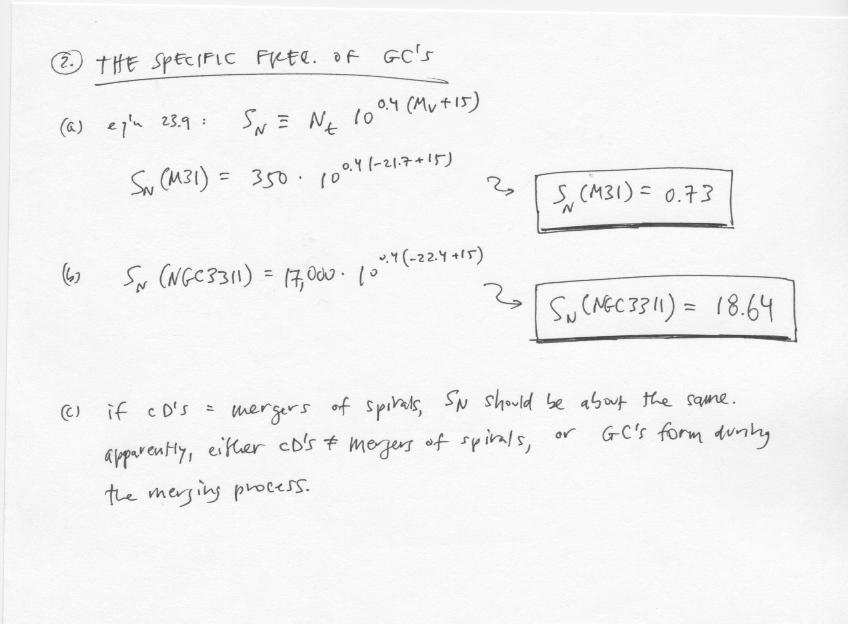 2. THE SPECIFIC FREQ. OF GC's
(a) eq'n 23.9 : S_N ≡ N_t 10^0.4 (M_V+15)
S_N (M31) = 350 · 10^0.4 (-21.7+15)
S_N (M31) = 0.73
(b) S_N (NGC3311) = 17,000 · 10^0.4 (-22.4+15)
S_N (NGC3311) = 18.64
(c) if cD's = mergers of spirals, S_N should be about the same.
apparently, either cD's ≠ mergers of spirals, or GC's form during
the merging process.